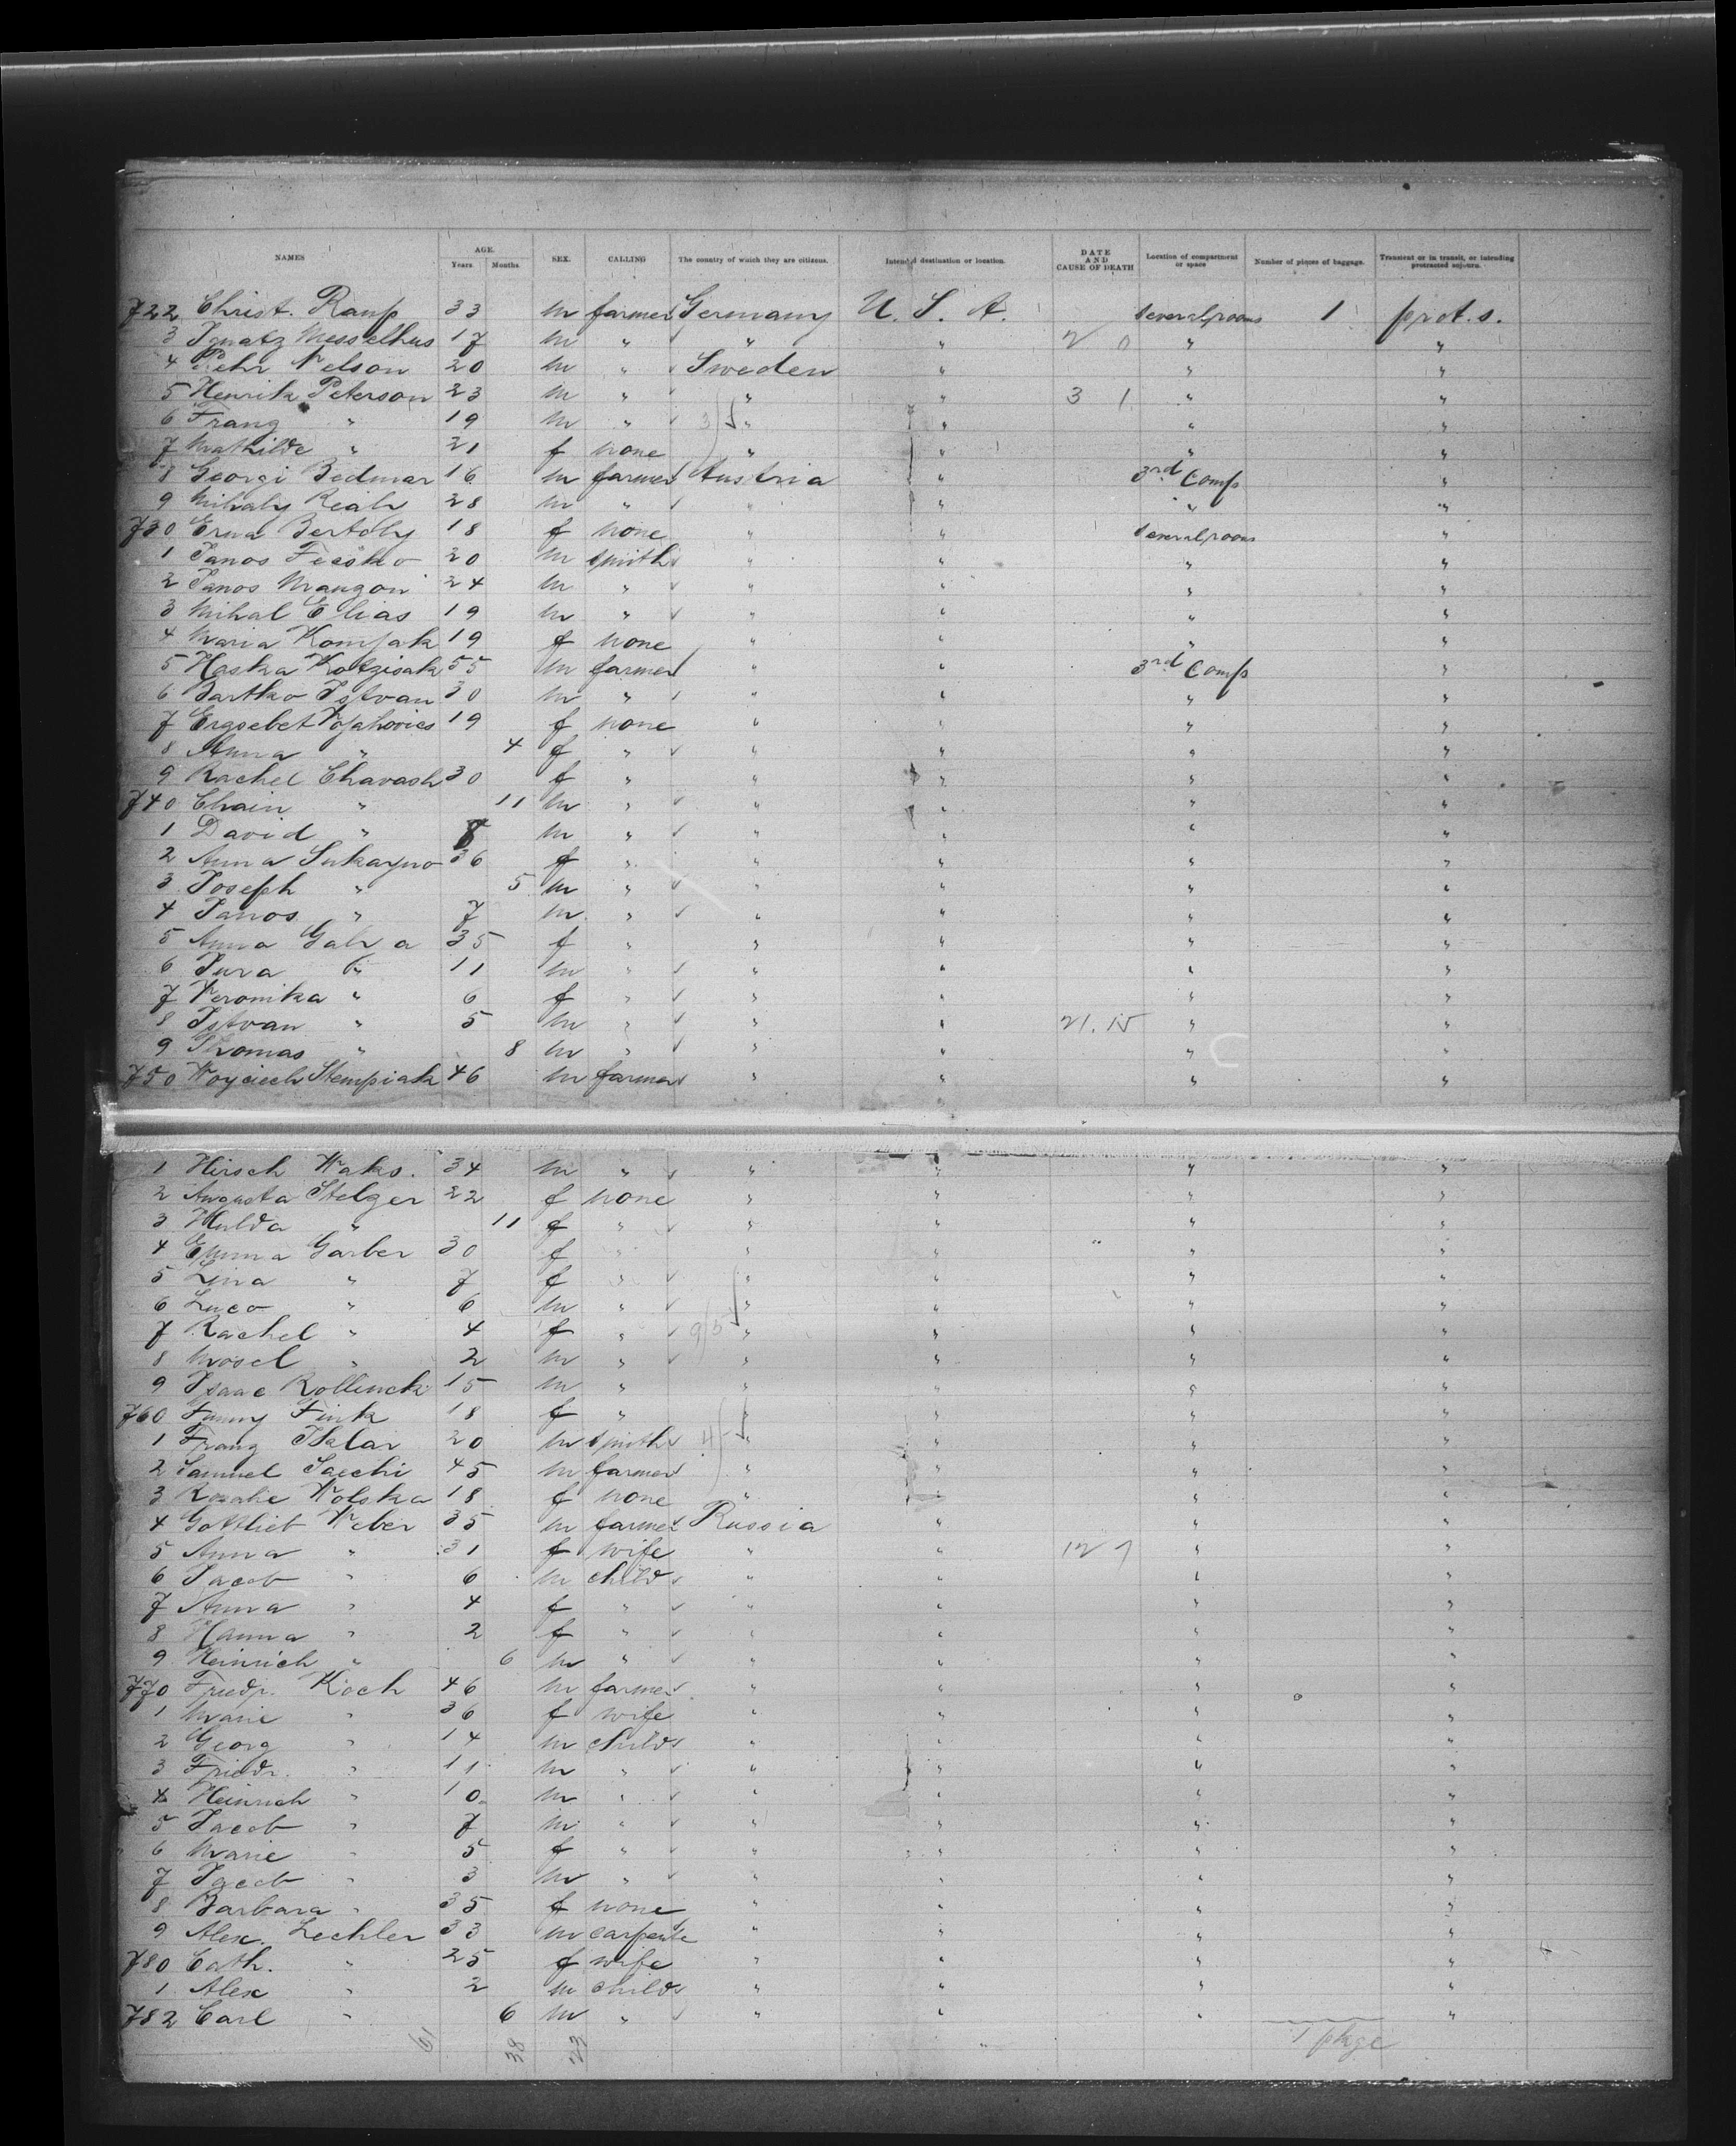 NAMES AGE. Years. Months. SEX. CALLING The country of which they are citizens. Intended destination or location. DATE AND CAUSE OF DEATH Location of compartment or space Number of pieces of baggage. Transient or in transit, or intending protracted sojourn.
722 Christ. Raup 33 m farmer Germany U. S. A. several rooms 1 prot. s.
3 Ignatz Messelhus 17 m " " " 2 0 " "
4 Pehr Nelson 20 m " Sweden " " "
5 Henrik Peterson 23 m " " " 3 1 " "
6 Franz " 19 m " 3 " " " "
7 Mathilde " 21 f none " " " "
8 Georgi Bedmar 16 m farmer Austria " 3rd Comp "
9 Mihaly Reah 28 m " " " " "
730 Erna Bertoby 18 f none " " several rooms "
1 Janos Fecsko 20 m smith " " " "
2 Janos Mangon 24 m " " " " "
3 Mihal Elias 19 m " " " " "
4 Maria Komjak 19 f none " " " "
5 Haska Kotzisak 55 m farmer " " 3rd Comp "
6 Bartko Istvan 30 m " " " " "
7 Erzsebet Vojahovics 19 f none " " " "
8 Anna " 4 f " " " " "
9 Rachel Chavash 30 f " " " " "
740 Chain " 11 m " " " " "
1 David " 8 m " " " " "
2 Anna Sukayno 36 f " " " " "
3 Joseph " 5 m " " " " "
4 Janos " 7 m " " " " "
5 Anna Galya 35 f " " " " "
6 Jura " 11 m " " " " "
7 Veronika " 6 f " " " " "
8 Istvan " 5 m " " " 21. 15 " "
9 Thomas " 8 m " " " " "
750 Woyciech Stempiak 46 m farmer " " " "
1 Hirsch Waks. 34 m " " " " "
2 Augusta Stelzer 22 f none " " " "
3 Hulda " 11 f " " " " "
4 Emma Garber 30 f " " " " "
5 Lina " 7 f " " " " "
6 Luco " 6 m " " " " "
7 Rachel " 4 f " 9/5 " " " "
8 Mosel " 2 m " " " " "
9 Isaac Rollinck 15 m " " " " "
760 Fanny Fink 18 f " " " " "
1 Franz Halar 20 m smith 4 " " " "
2 Samuel Saechi 45 m farmer " " " "
3 Rosalie Wolska 18 f none " " " "
4 Gottlieb Weber 35 m farmer Russia " " "
5 Anna " 31 f wife " " 12 7 " "
6 Jacob " 6 m child " " " "
7 Anna " 4 f " " " " "
8 Hanna " 2 f " " " " "
9 Heinrich " 6 m " " " " "
770 Friedr. Koch 46 m farmer " " " "
1 Marie " 36 f wife " " " "
2 Georg " 14 m child " " " "
3 Friedr. " 11 m " " " " "
4 Heinrich " 10 m " " " " "
5 Jacob " 7 m " " " " "
6 Marie " 5 f " " " " "
7 Jacob " 3 m " " " " "
8 Barbara " 35 f none " " " "
9 Alex. Lechler 33 m carpente " " " "
780 Cath. " 25 f wife " " " "
1 Alex " 2 m child " " " "
782 Carl " 6 m " " " " "
61 38 23 1 pkge